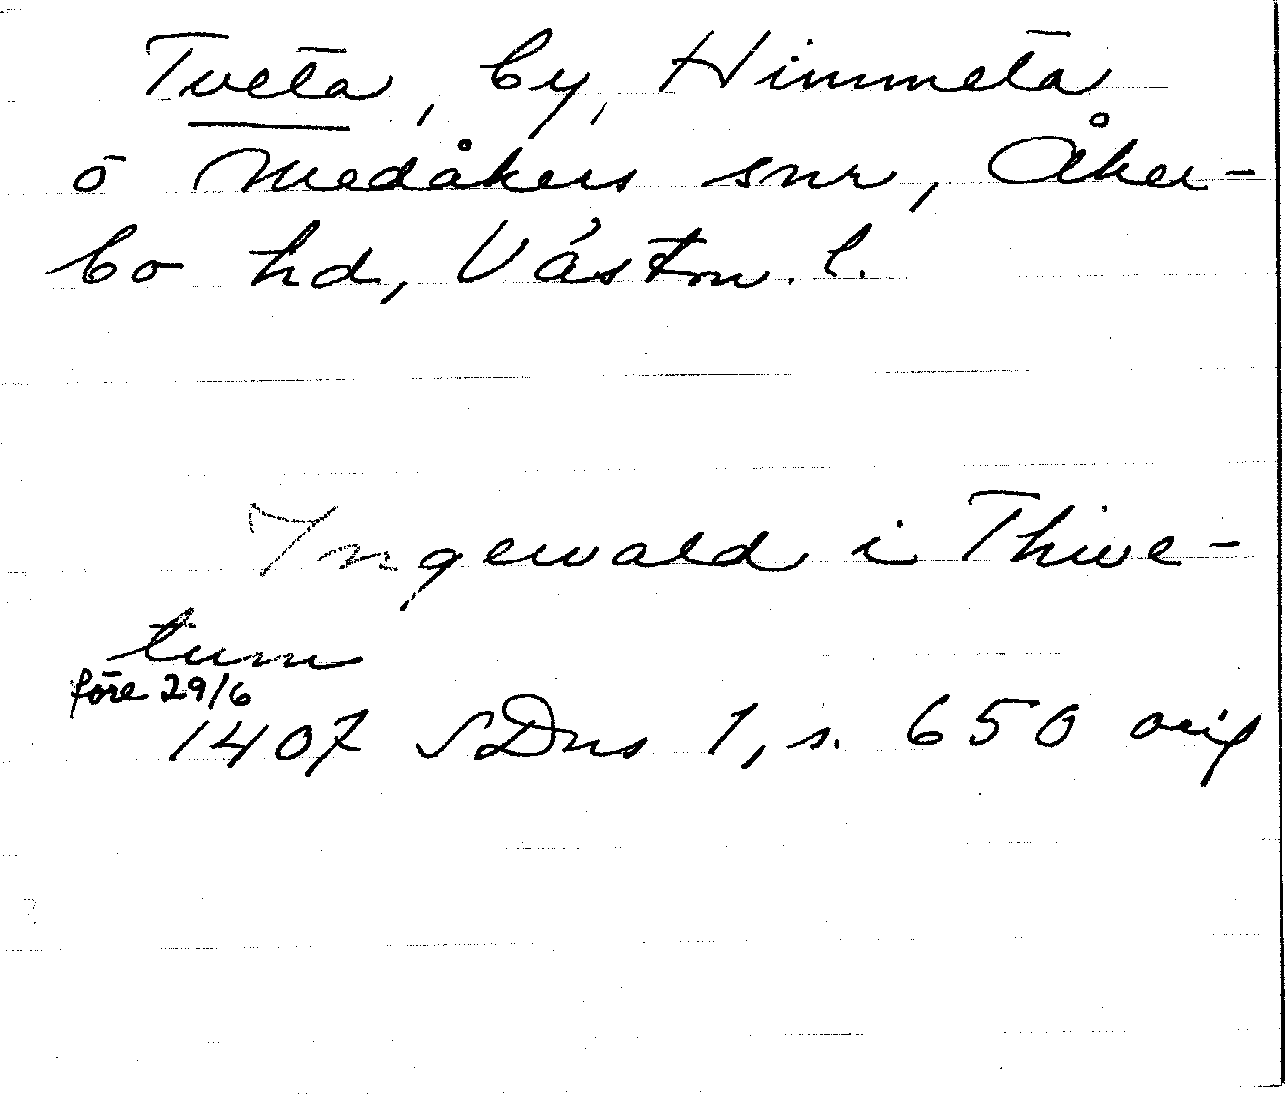 Tveta, by, Himmeta
o Medåkers snr, Åker-
bo hd, Västm. l.
Ingewald i Thiwe-
tum
före 29/6
1407 SDns 1, s. 650 orig